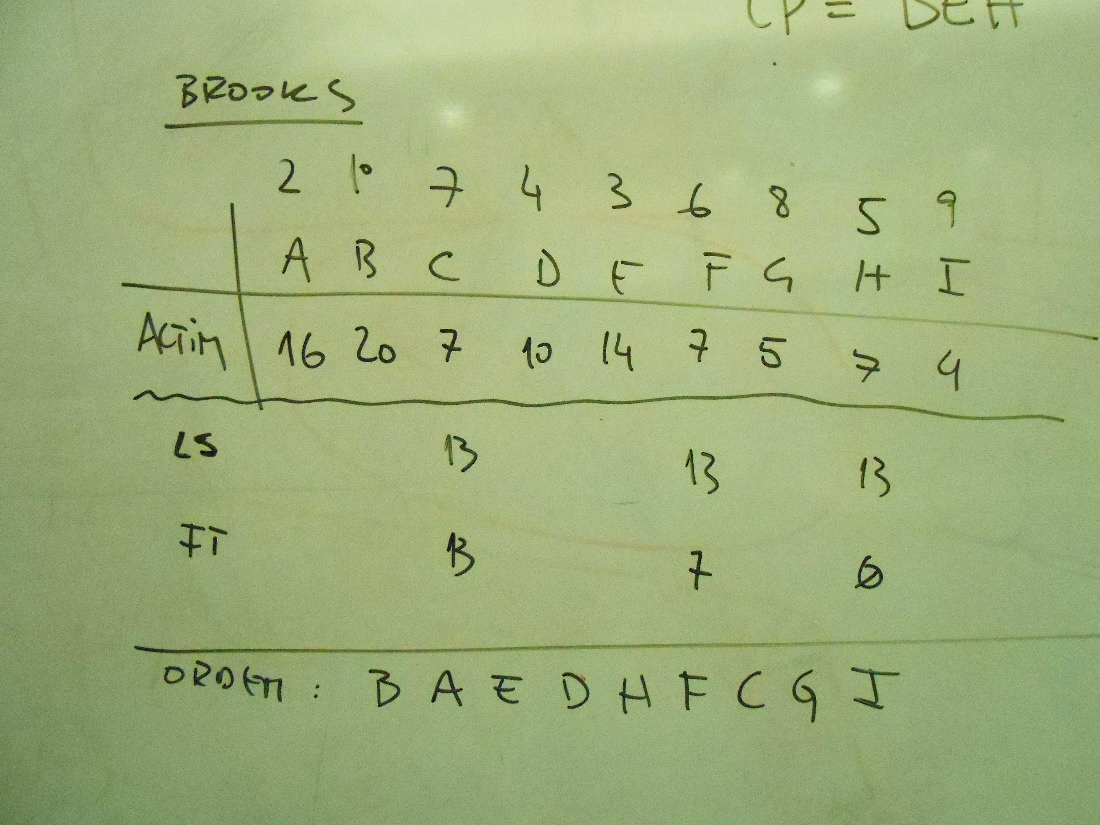 CP = BEH
BROOKS
2 1º 7 4 3 6 8 5 9
A B C D E F G H I
ACTIM 16 20 7 10 14 7 5 7 4
LS 13 13 13
FT 13 7 0
ORDEM: B A E D H F C G I